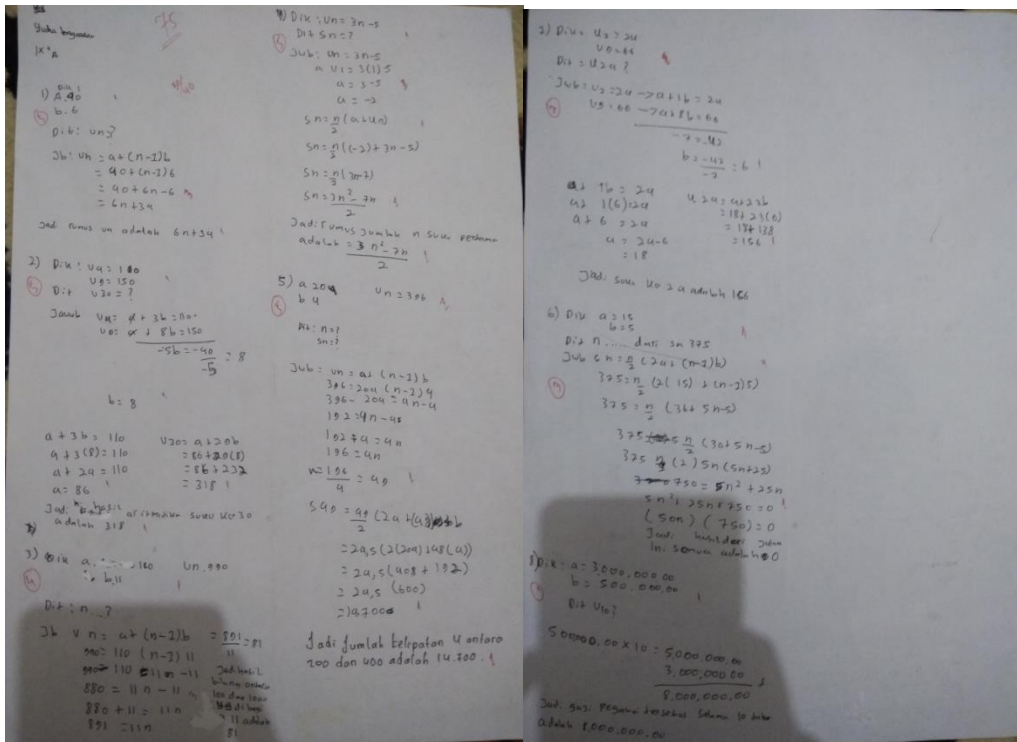 75
IX A
1) Dik
A. 40
b. 6
Dit: un?
Jb: un = a+(n-1)b
= 40+(n-1)6
= 40+6n-6
= 6n+34
Jadi rumus un adalah 6n+34
2) Dik: U4 = 110
U9 = 150
Dit U30 = ?
Jawab U4= a + 3b = 110
U9= a + 8b = 150
-5b = -40
-5
= 8
b = 8
a + 3b = 110
a + 3(8) = 110
a + 24 = 110
a = 86
U30 = a+29b
= 86+29(8)
= 86+232
= 318
aritmatika suku ke 30
adalah 318
3) Dik a. 110 Un. 990
b. 11
Dit: n...?
Jb Un = a+(n-1)b
990= 110 (n-1) 11
990= 110 11n -11
880 = 11n -11
880 + 11 = 11n
891 = 11n
= 891 = 81
11
Jadi hasil
bilang antara
100 dan 1000
di bagi
11 adalah
81
4) Dik: Un = 3n -5
Dit Sn = ?
Jwb: Un = 3n-5
a U1 = 3(1) 5
a = 3-5
a = -2
Sn = n/2 (a+un)
Sn = n/2 ((-2)+3n-5)
Sn = n/2 (3n-7)
Sn = 3n²-7n
2
Jadi rumus jumlah n suku pertama
adalah = 3n²-7n
2
5) a 204 Un = 396
b 4
Dit: n=?
Sn=?
Jwb: Un = a+ (n-1)b
396 = 204 (n-1)4
396 - 204 = 4n-4
192 = 4n-4
192+4 = 4n
196 = 4n
n= 196 = 49
4
S49 = 49/2
= 24,5 (2(204)+48(4))
= 24,5 (408+192)
= 24,5 (600)
= 14.700
Jadi Jumlah kelipatan 4 antara
200 dan 400 adalah 14.700.
7) Dik= U2 = 24
U9 = 66
Dit = U24?
Jwb = U2 = 24 → a+1b = 24
U9 = 66 → a+8b = 66
-7 = -42
b = -42 = 6
-7
a+ 1b = 24
a+ 1(6) = 24
a + 6 = 24
a = 24-6
= 18
U24 = a+23b
= 18+23(6)
= 18+138
= 156
Jadi suku ke 24 adalah 156
6) Dik a = 15
b = 5
Dit n ..... dari Sn 375
Jwb Sn = n/2 (2a+(n-1)b)
375 = n/2 (2(15) + (n-1)5)
375 = n/2 (30+5n-5)
375 n/2 (30+5n-5)
375 n/2 (2) 5n (5n+25)
750 = 5n² + 25n
5n² + 25n + 750 = 0
(50n) (750) = 0
Jadi hasil dari jalan
ini semua adalah 0
8) Dik: a = 3.000.000,00
b = 500.000,00
Dit U10?
500000,00 x 10 = 5,000,000,00
3,000,000,00
8,000,000,00
Jadi gaji pegawai tersebut selama 10 tahun
adalah 8,000,000,00